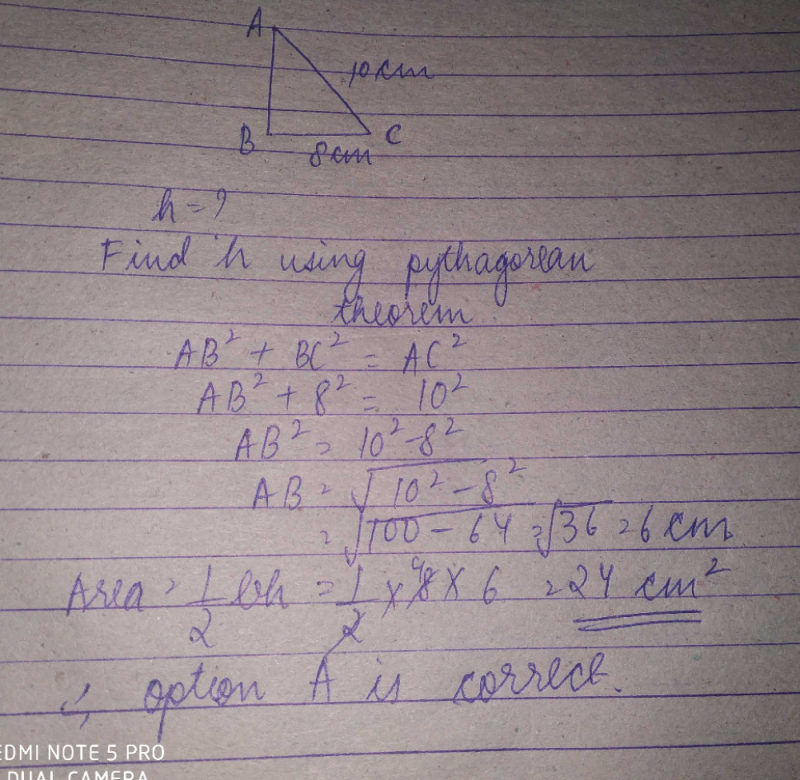 A
10cm
B
C
8cm
h = ?
Find h using pythagorean
theorem
AB² + BC² = AC²
AB² + 8² = 10²
AB² = 10² - 8²
AB = √10² - 8²
= √100 - 64 = √36 = 6 cm
Area = 1/2 bh = 1/2 × 8 4 × 6 = 24 cm²
∴ option A is correct.
REDMI NOTE 5 PRO
DUAL CAMERA